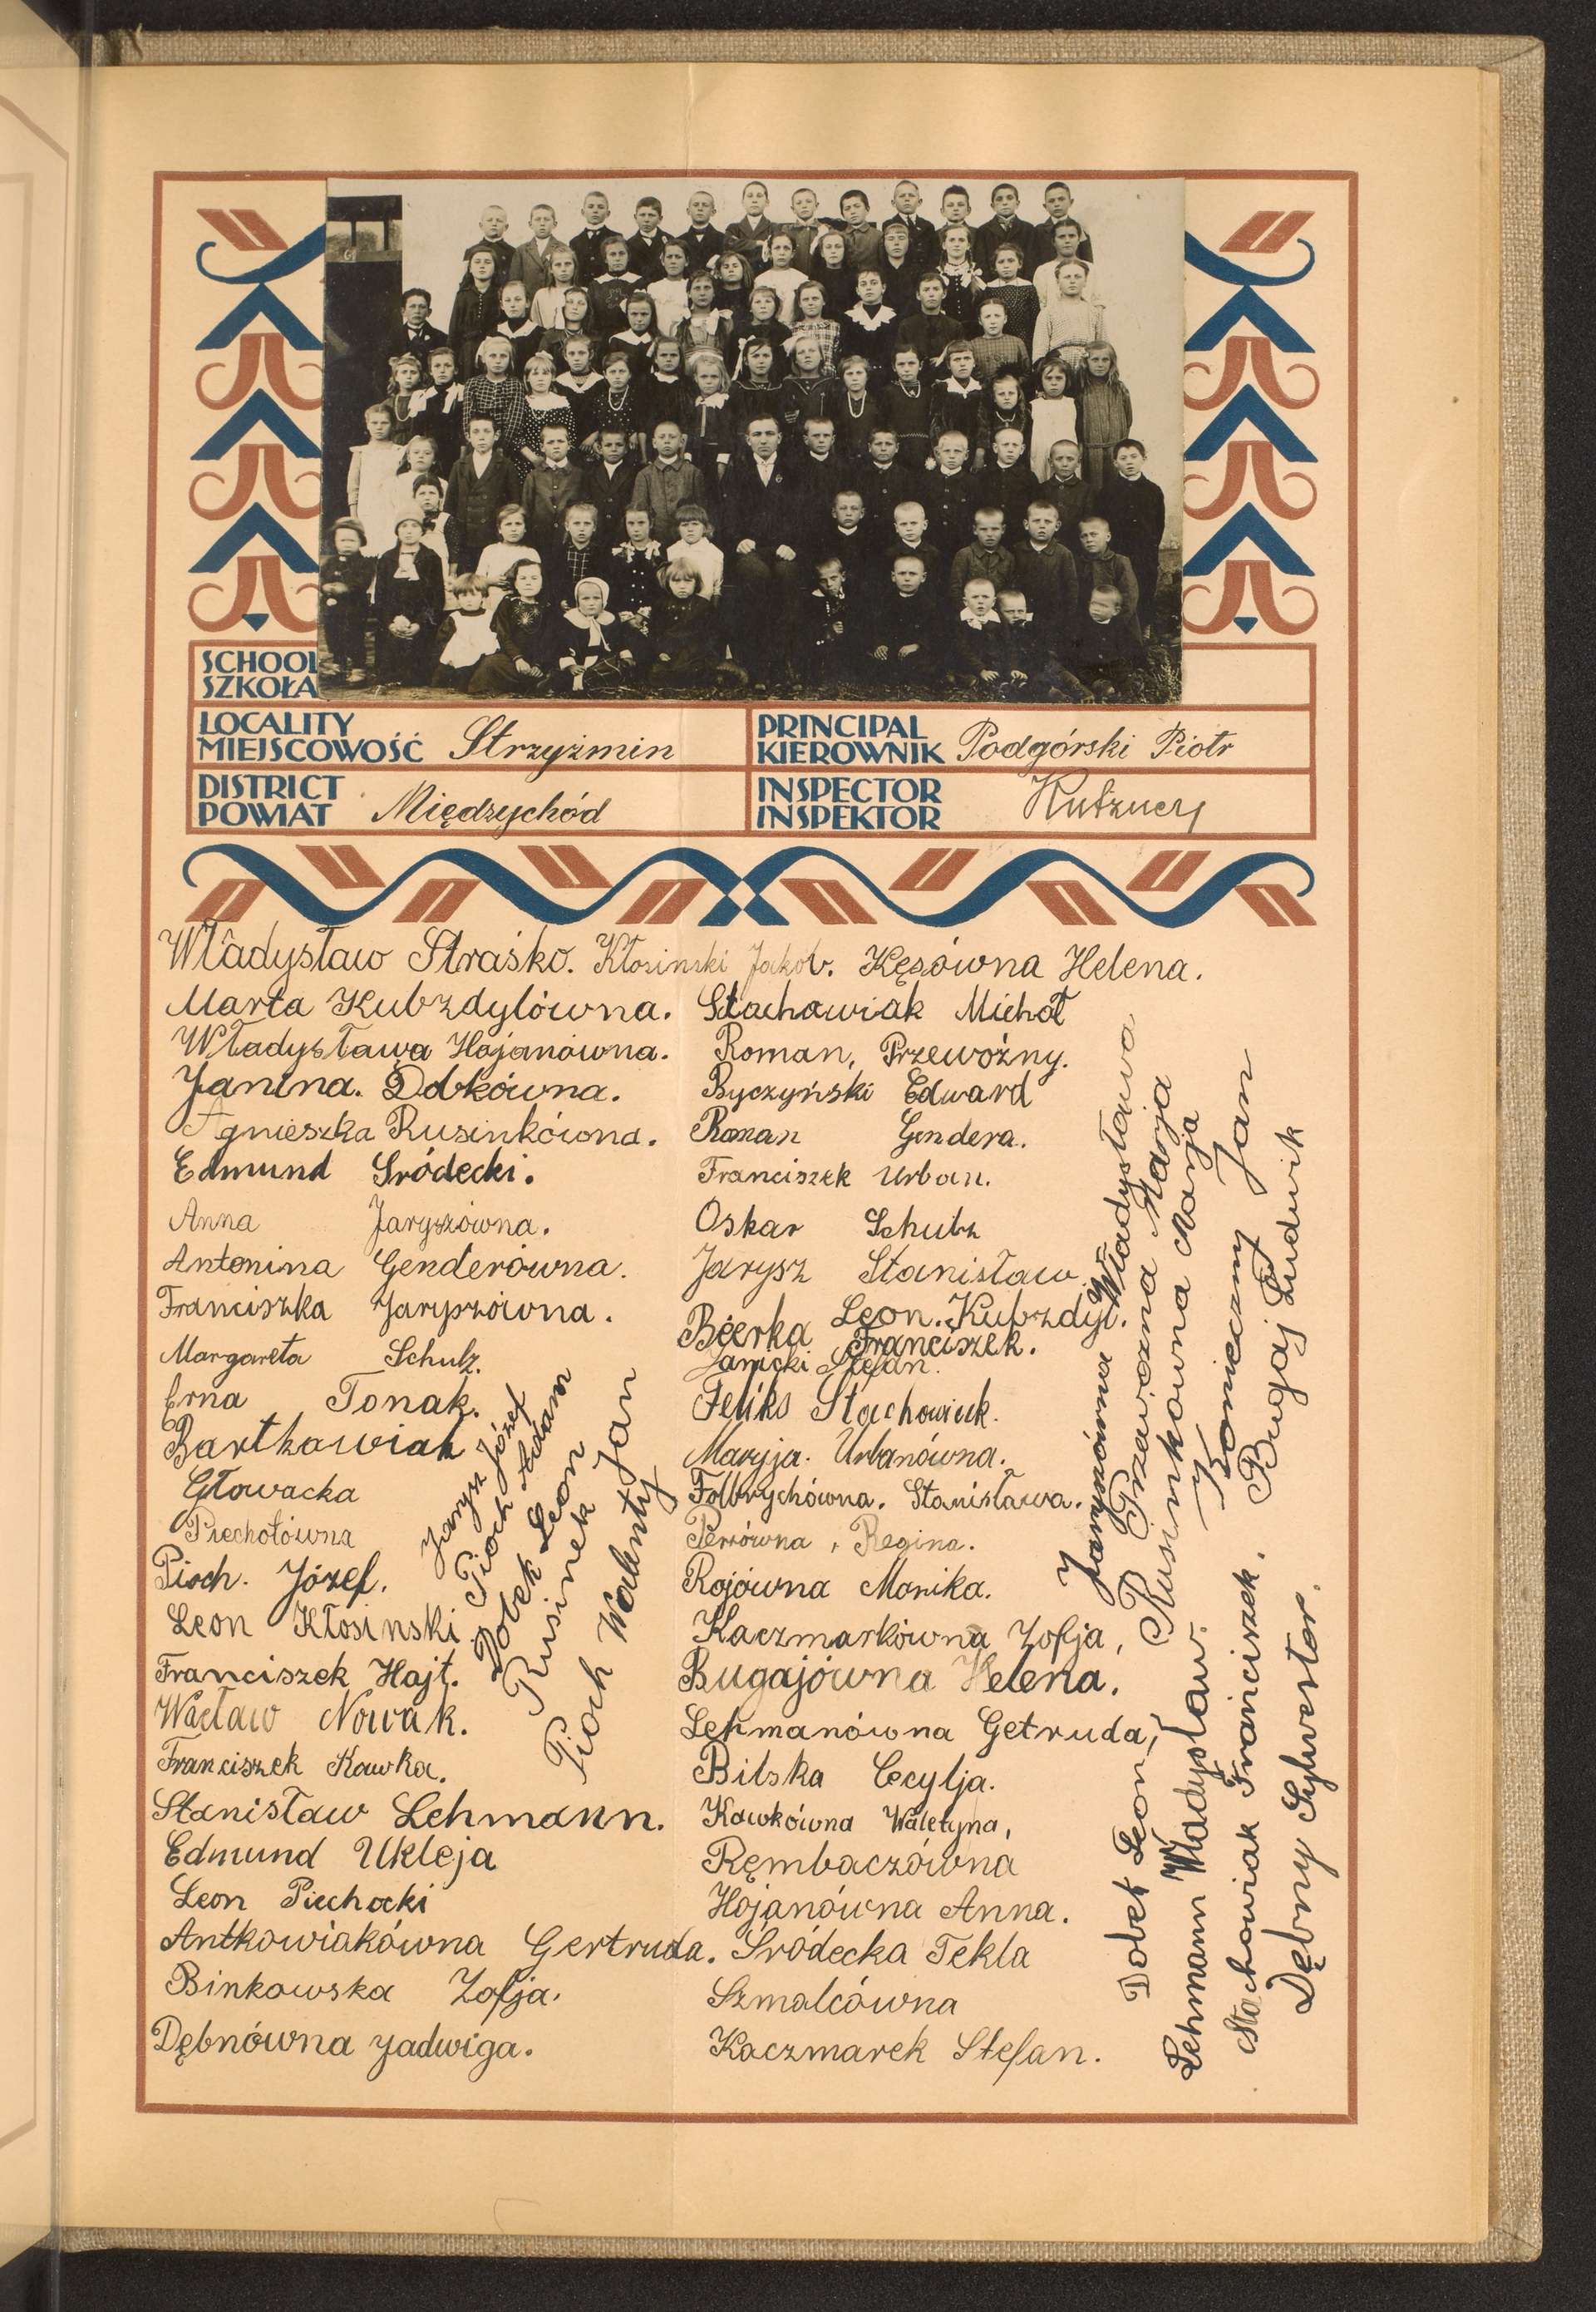 SCHOOL
SZKOŁA
LOCALITY
MIEJSCOWOŚĆ Strzyżmin
PRINCIPAL
KIEROWNIK Podgórski Piotr
DISTRICT
POWIAT Międzychód
INSPECTOR
INSPEKTOR
Władysław Straśko. Kłosinski Jakób. Kęsówna Helena.
Marta Kubzdylówna.
Władysława Hojanówna.
Janina. Dobkówna.
Agnieszka Rusinkówna.
Edmund Sródecki.
Anna Jaryszówna.
Antonina Genderówna.
Franciszka Jaryszówna.
Margareta Schulz.
Erna Tonak.
Bartkowiak
Głowacka
Piechotówna
Pioch. Józef.
Leon Kłosinski
Franciszek Hajt.
Wacław Nowak.
Franciszek Kawka.
Stanisław Lehmann.
Edmund Ukleja
Leon Piechocki
Antkowiakówna Gertruda.
Binkowska Zofja.
Dębnówna Jadwiga.
Jarysz Józef
Pioch Adam
Dobek Leon
Rusinek Jan
Pioch Walenty
Stachowiak Michoł
Roman, Przewoźny.
Byczyński Edward
Roman Gendera.
Franciszek Urban.
Oskar Schulz
Jarysz Stanisław.
Leon. Kubzdyl.
Bierka Franciszek.
Janicki Stefan.
Feliks Stachowiak.
Maryja. Urbanówna.
Folbrychówna. Stanisława.
Regina.
Rojówna Monika.
Kaczmarkówna Zofja,
Bugajówna Helena.
Lehmanówna Getruda,
Bilska Cecylja.
Kawkówna Waletyna,
Rębaczówna
Hojanówna Anna.
Śródecka Tekla
Szmalcówna
Kaczmarek Stefan.
Jaryszówna Władysława
Przewoźna Marja
Rusinkówna Marja
Konieczny Jan
Bugaj Ludwik
Dobek Leon
Lehmann Władysław.
Stachowiak Franciszek.
Dębny Sylwester.